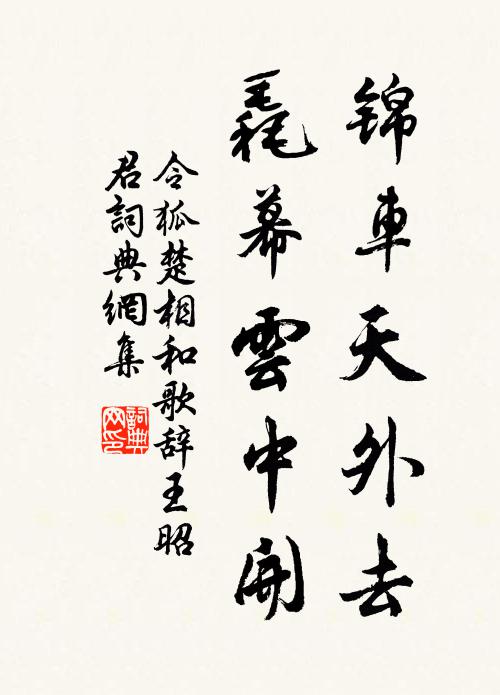 锦車天外去
毳幕雲中開
令狐楚相和歌辞王昭
君詞典網集
詞典
网印